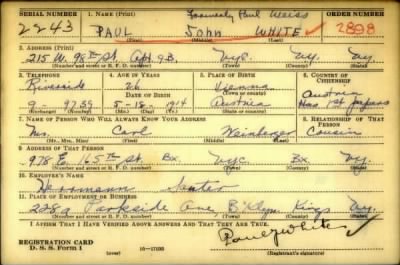 SERIAL NUMBER 1. NAME (Print) Formerly Paul Weiss ORDER NUMBER
2243 PAUL John WHITE 2898
(First) (Middle) (Last)
2. ADDRESS (Print)
215 W. 98th St. Apt. 9B. Nyc. Ny. Ny.
(Number and street or R. F. D. number) (Town) (County) (State)
3. TELEPHONE 4. AGE IN YEARS 5. PLACE OF BIRTH 6. COUNTRY OF CITIZENSHIP
Riverside 26 Vienna Austria
DATE OF BIRTH (Town or county)
9-9739 5-18-1914 Austria Has 1st papers
(Exchange) (Number) (Mo.) (Day) (Yr.) (State or country)
7. NAME OF PERSON WHO WILL ALWAYS KNOW YOUR ADDRESS 8. RELATIONSHIP OF THAT PERSON
Mrs. Carl Weinberger Cousin
(Mr., Mrs., Miss) (First) (Middle) (Last)
9. ADDRESS OF THAT PERSON
978 E. 165th St. Bx. Nyc Bx. Ny.
(Number and street or R. F. D. number) (Town) (County) (State)
10. EMPLOYER'S NAME
11. PLACE OF EMPLOYMENT OR BUSINESS
Parkside Ave, B'klyn. Kings Ny.
(Number and street or R. F. D. number) (Town) (County) (State)
I AFFIRM THAT I HAVE VERIFIED ABOVE ANSWERS AND THAT THEY ARE TRUE.
REGISTRATION CARD
D. S. S. Form 1 (over) Paul J White
(Registrant's signature)